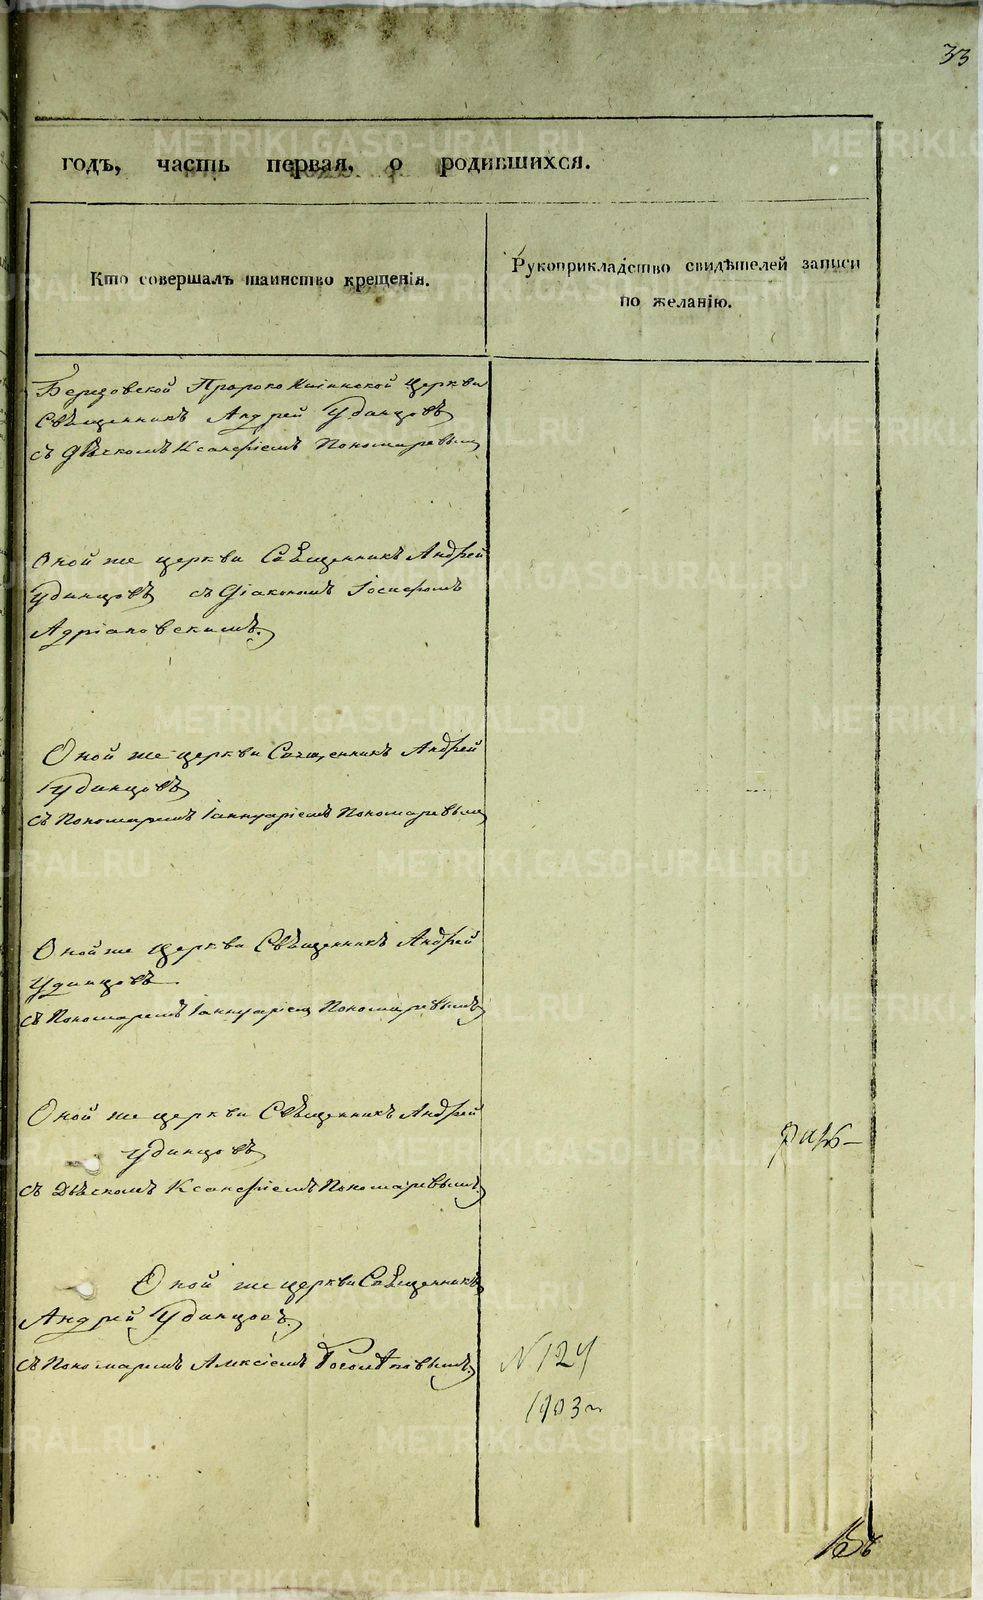 33
годъ, часть первая, о родившихся.
Кто совершалъ таинство крещенія.
Рукоприкладство свидѣтелей записи
по желанію.
Березовской Пророко Ильинской церкви
Священникъ Андрей Удинцовъ
съ Дьячкомъ Ксанфіемъ Пономаревымъ
Оной же церкви Священникъ Андрей
Удинцовъ съ Діакономъ Іосифомъ
Адріановскимъ.
Оной же церкви Священникъ Андрей
Удинцовъ
съ Пономаремъ Іаннуаріемъ Пономаревымъ
Оной же церкви Священникъ Андрей
Удинцовъ
съ Пономаремъ Іаннуаріемъ Пономаревымъ
Оной же церкви Священникъ Андрей
Удинцовъ
съ Дьячкомъ Ксанфіемъ Пономаревымъ
Оной же церкви Священникъ
Андрей Удинцовъ.
съ Пономаремъ Алексіемъ
N 124
1903 г
METRIKI.GASO-URAL.RU